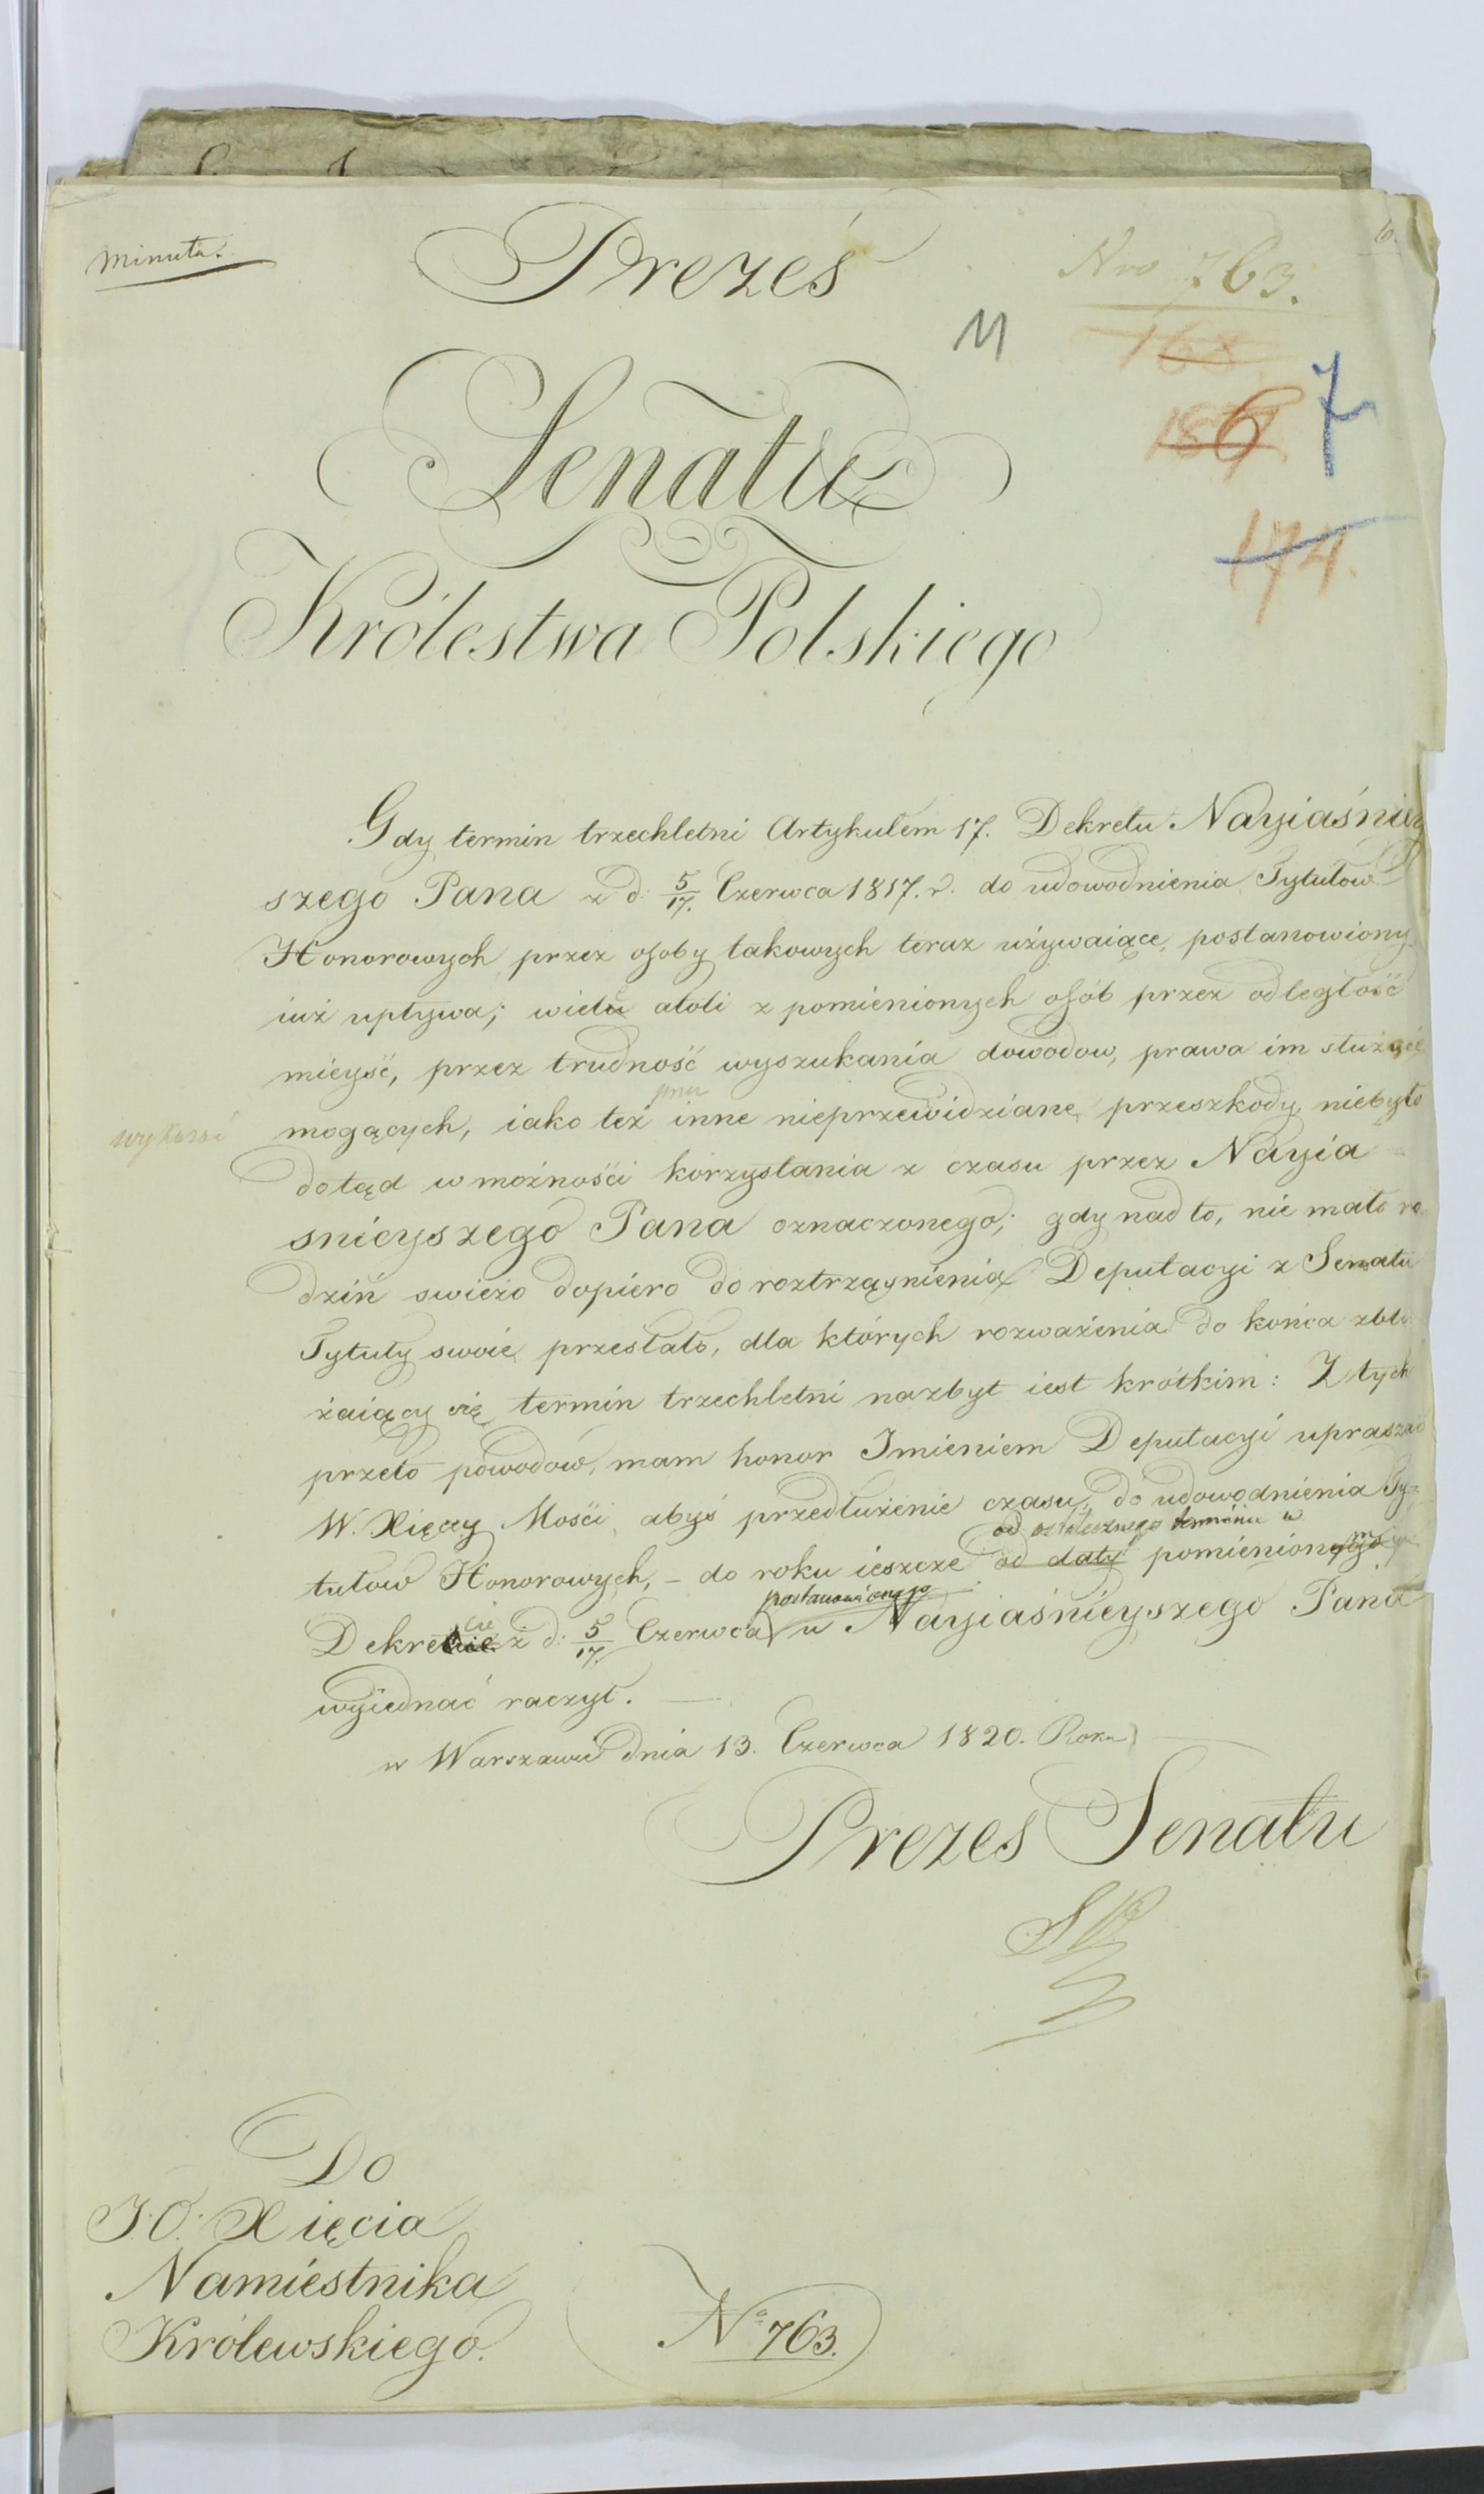 Minuta.
Prezes
Nro 763.
6.
11
168
186
7
Senatu
174.
Królestwa Polskiego
Gdy termin trzechletni Artykułem 17. Dekretu Nayiaśniey
szego Pana z d: 5/17. Czerwca 1817. r. do udowodnienia Tytułow
Honorowych przez osoby takowych teraz używaiące, postanowiony
iuż upływa; wielu atoli z pomienionych osób przez odległość
mieysć, przez trudność wyszukania dowodow, prawa im służące
przez
wykazać mogących, iako też inne nieprzewidziane przeszkody niebyło
dotąd w możności korzystania z czasu przez Nayia
snieyszego Pana oznaczonego; gdy nad to, nie mało ro
dzin swieżo dopiero do roztrząsnienia Deputacyi z Senatu
Tytuły swoie przesłało, dla których rozważenia do końca zbli
żaiący się termin trzechletni nazbyt iest krótkim: Z tych
przeto powodów, mam honor Imieniem Deputacyi upraszać
W. Xięcey Mości, abyś przedłużenie czasu, do udowodnienia Ty=
od ostatecznego terminu w
tułow Honorowych, – do roku ieszcze od daty pomienionym
postanowionego
Dekrecie z d: 5/17. Czerwca u Nayiaśnieyszego Pana
wyiednać raczył. —
w Warszawie dnia 13. Czerwca 1820. Roku
Prezes Senatu
Do
J.O. Xięcia
Namiestnika
Królewskiego.
No 763.